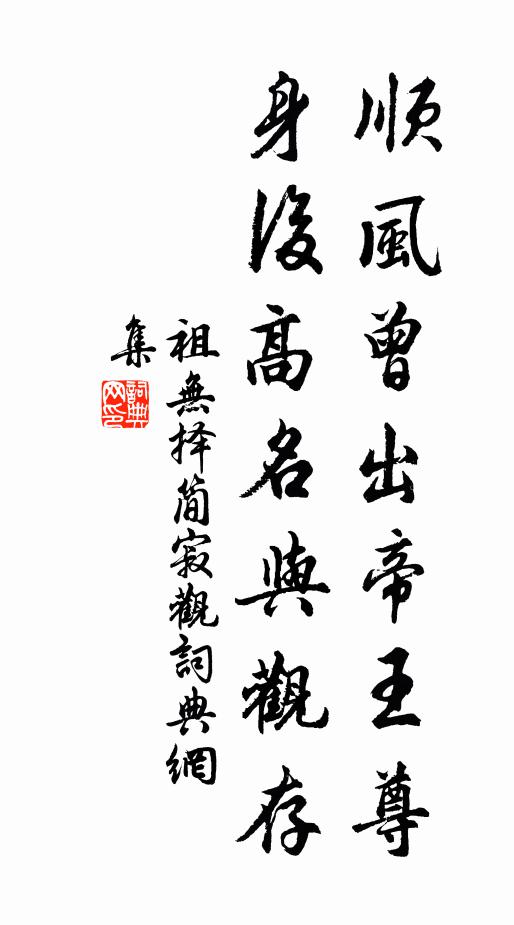 順風曾出帝王尊
身後高名與觀存
祖無择簡寂觀詞典網
集
詞典
网印